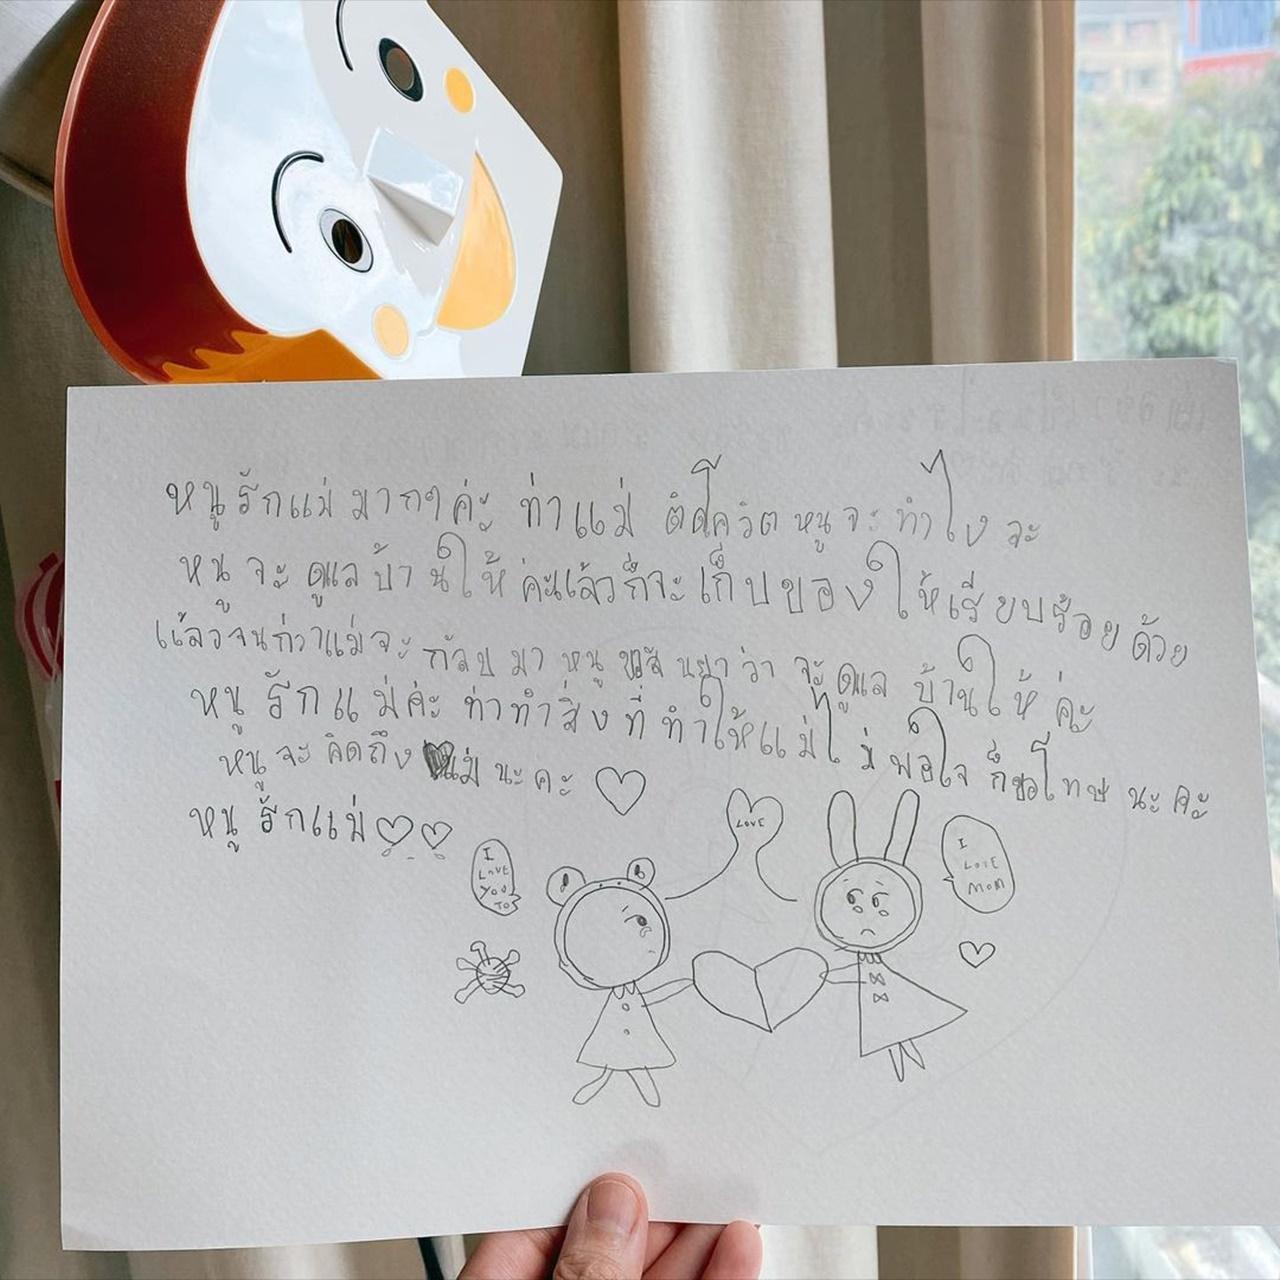 หนูรักแม่มากๆค่ะ ท่าแม่ ติดโควิด หนูจะทำไงจะ
หนูจะดูแลบ้านให้ค่ะแล้วก็จะเก็บของให้เรียบร้อยด้วย
แล้วจนกว่าแม่จะกลับมา หนู นยาว่า จะดูแลบ้านให้ค่ะ
หนูรักแม่ค่ะ ท่าทำสิ่งที่ทำให้แม่ไม่พอใจก็ขอโทษนะคะ
หนูจะคิดถึงแม่นะคะ
หนูรักแม่
LOVE
I
LOVE
YOU
TO
I
LOVE
MOM